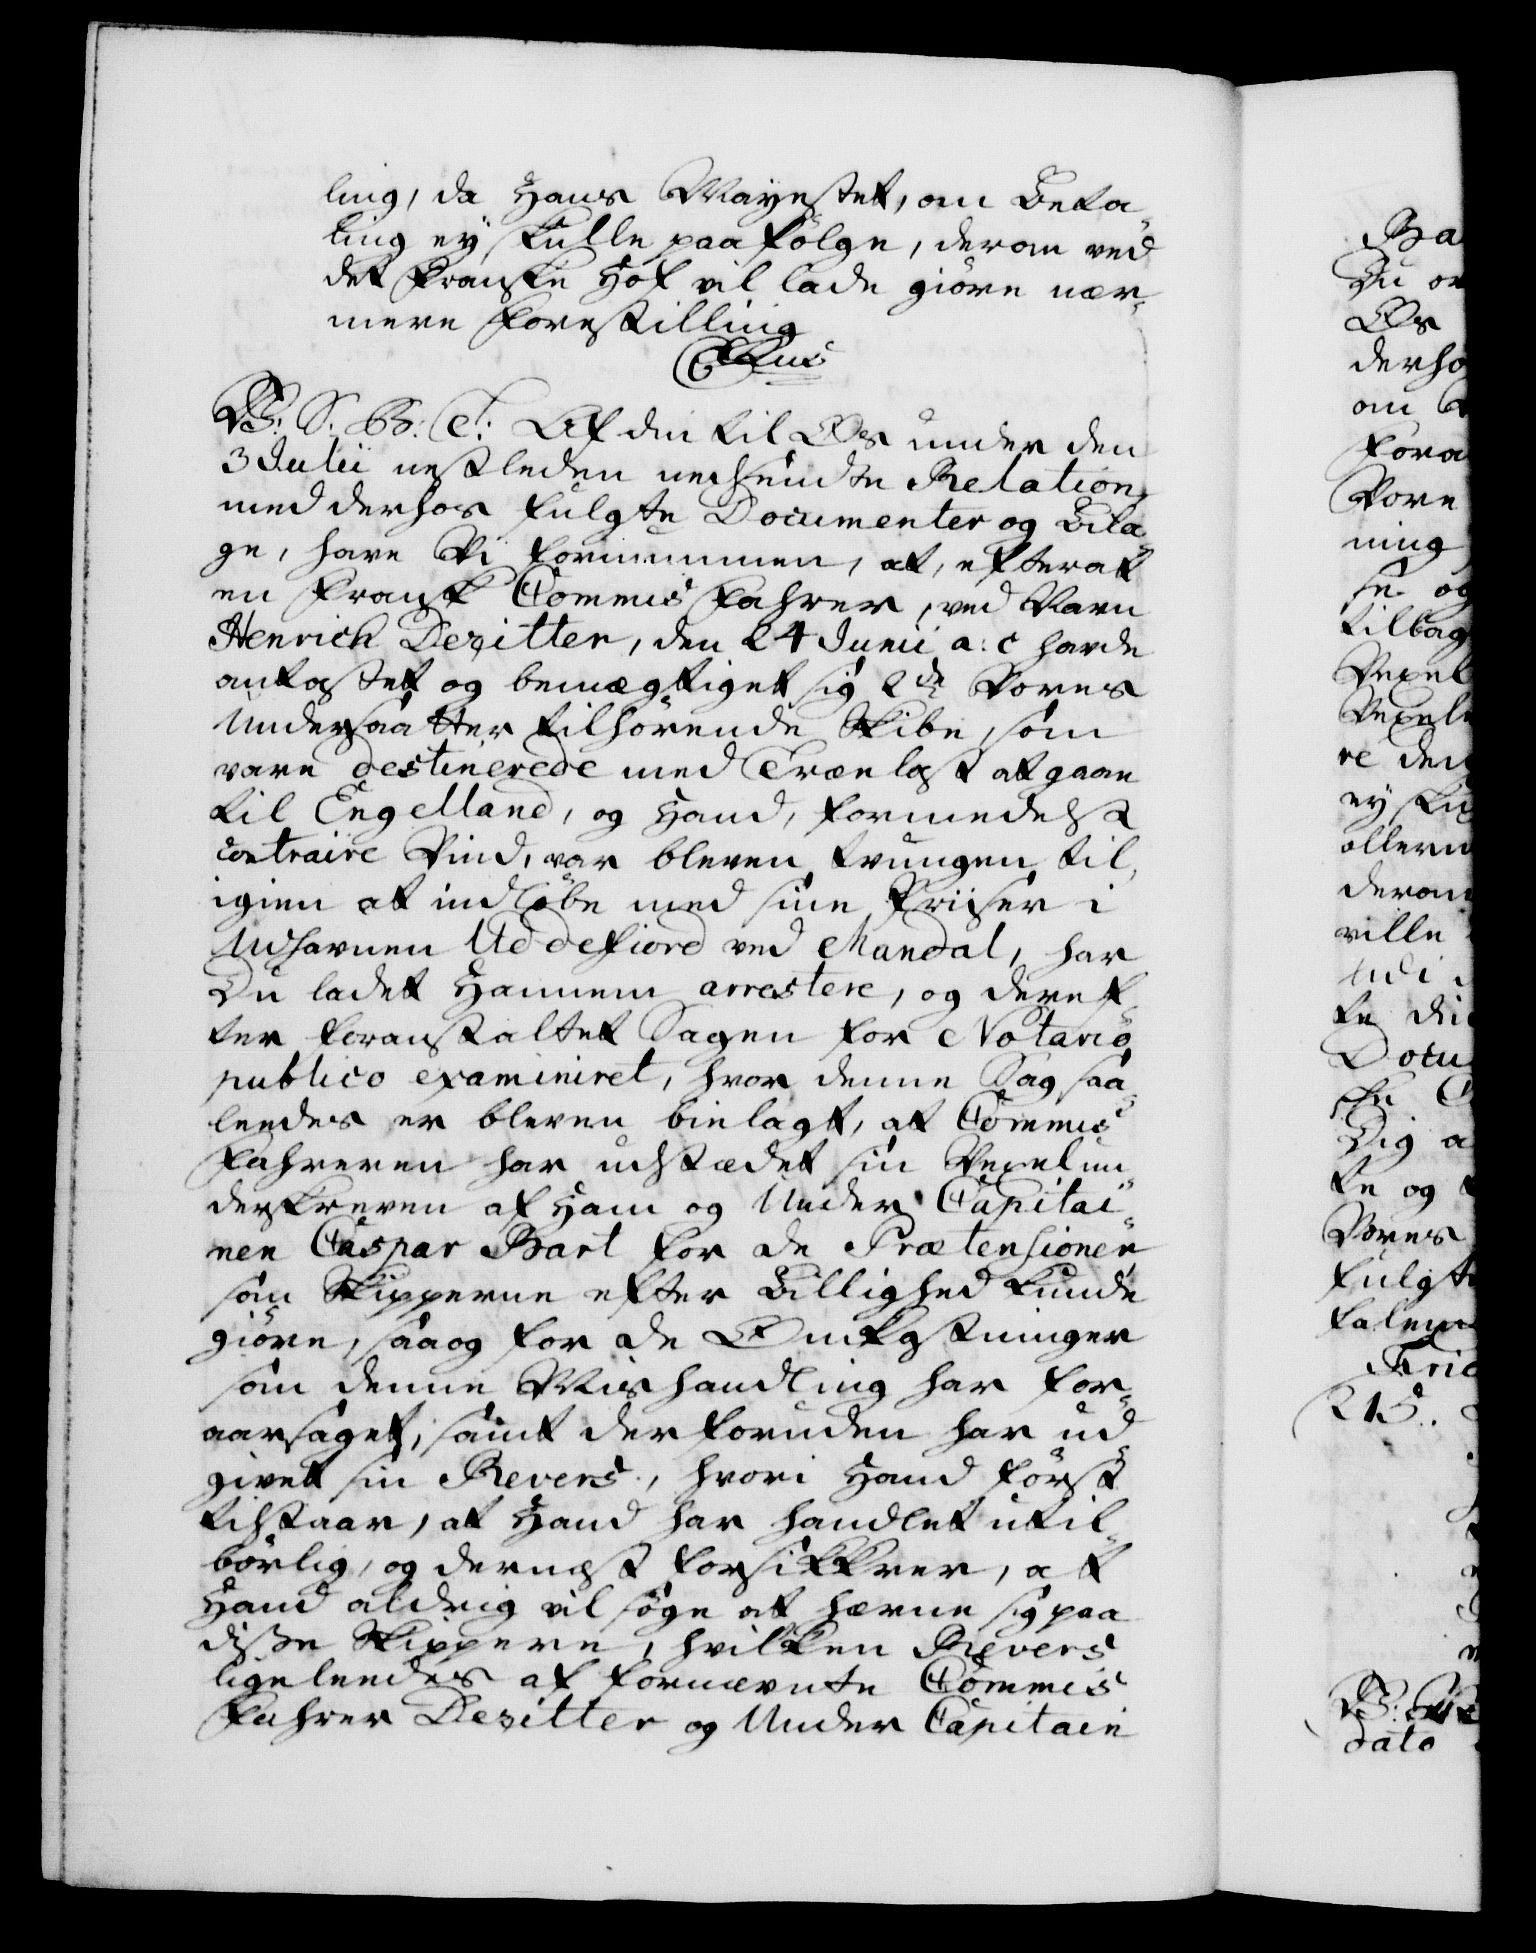 ling, da Hans Mayestet, om Beta-
ling ey skulle paafölge, derom ved
det Franske Hof vil lade giöre nær-
mere Forestilling
W: S: G: T: Af din til Os under den
3 Julii nestleden nedsendte Relation,
med derhos fulgte Documenter og Bila-
ge, have Vi fornummen, at, efterat
en Fransk Commis Fahrer, ved Navn
Henrich Dezitter, den 24 Junii a: c havde
antastet og bemægtiget sig 2de Vores
Undersaatter tilhörende Skibe, som
vare destinerede med Trælast at gaae
til Engelland, og Hand, formedelst
contraire Vind, var bleven tvungen til,
igien at indlöbe med sine Priiser i
Udhavnen Uddefiord ved Mandal, har
Du ladet Hannem arrestere, og deref-
ter foranstaltet Sagen for Notario
publico examineret, hvor denne Sag saa-
leedes er bleven bielagt, at Commis-
Fahreren har udstædet sin Vexel un-
derskreven af Ham og Under Capitai-
nen Caspar Bart for de Prætensioner,
som Skipperne efter Billighed kunde
giöre, saa og for de Omkostninger
som denne Mishandling har for-
aarsaget, samt derforuden har ud-
givet sin Revers, hvori Hand först
tilstaar, at Hand har handlet util-
börlig, og dernest forsikkrer, at
Hand aldrig vil söge at hævne sig paa
disse Skippere, hvilken Revers
ligeleedes af fornævnte Commis
Fahrer Dezitter og Under Capitain
Ba
Du
Os
om
Vore
ning
og
tilbag
Vexel
re den
ville
Docu
Dig a
te og
Vores
fulgte
Frid
dato